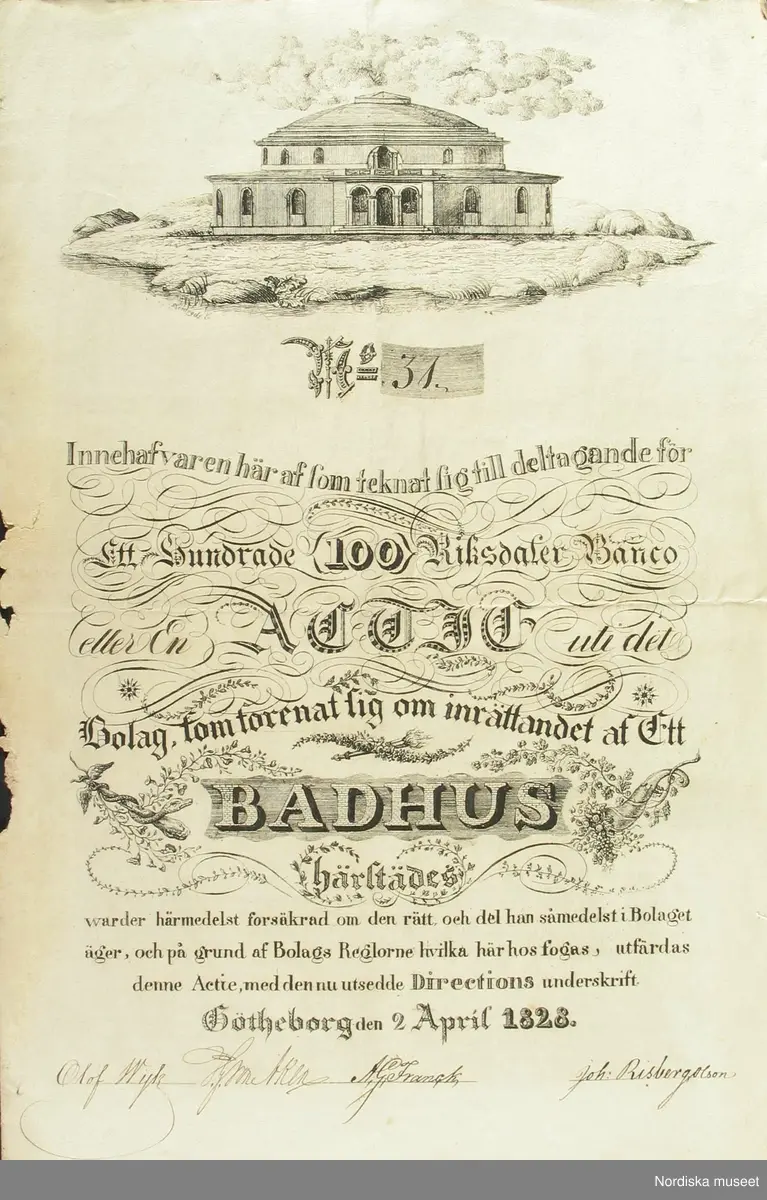 Nº 31.
Innehafvaren här af som teknat sig till deltagande för
Ett Hundrade (100) Riksdaler Banco
eller En ACTIE uti det
Bolag, som förenat sig om inrättandet af Ett
BADHUS
härstädes
warder härmedelst försäkrad om den rätt, och del han såmedelst i Bolaget
äger, och på grund af Bolags Reglorne hvilka här hos fogas, utfärdas
denne Actie, med den nu utsedde Directions underskrift.
Götheborg den 2 April 1828.
Olof Wyk A.G. Franck Joh: Risberg Olson
Nordiska museet